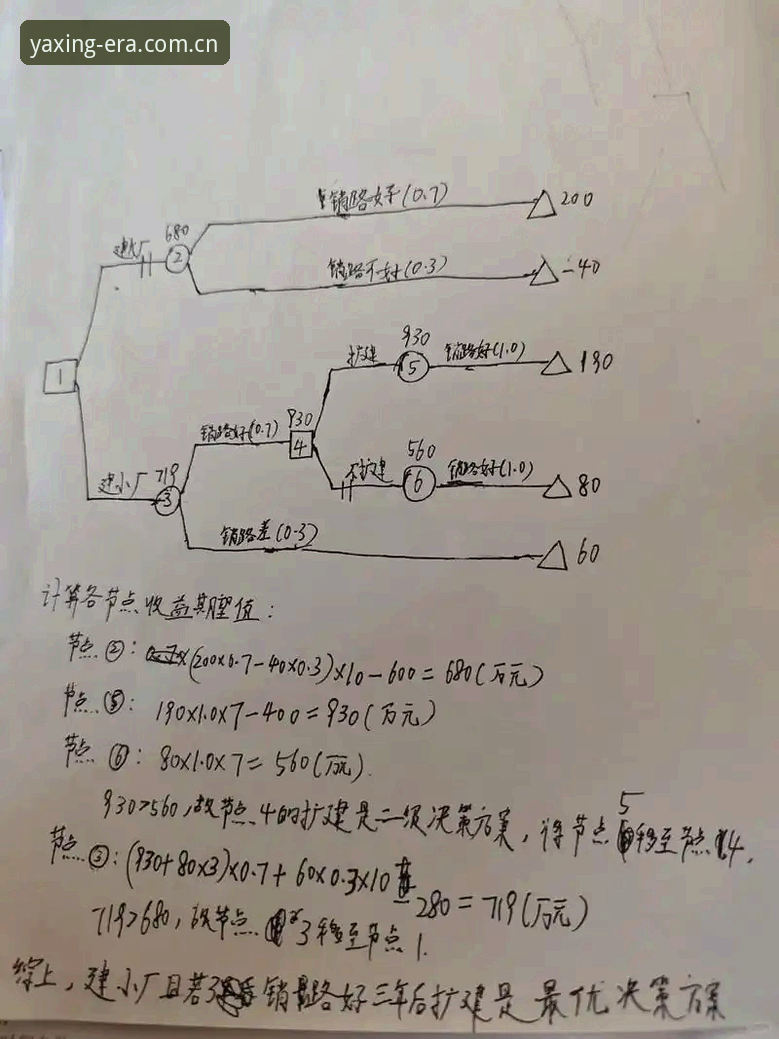 yaxing-era.com.cn
销路好(0.7)
200
680
建大厂
2
销路不好(0.3)
-40
930
扩建
5
销路好(1.0)
190
1
销路好(0.7)
930
4
560
不扩建
6
销路好(1.0)
80
建小厂
719
3
销路差(0.3)
60
计算各节点收益期望值:
节点②: (200×0.7-40×0.3)×10-600=680(万元)
节点⑤: 190×1.0×7-400=930(万元)
节点⑥: 80×1.0×7=560(万元).
930>560,故节点4的扩建是二级决策方案,将节点5移至节点4.
节点③: (930+80×3)×0.7+60×0.3×10
-280=719(万元)
719>680,故节点3移至节点1.
综上,建小厂且若销路好三年后扩建是最优决策方案